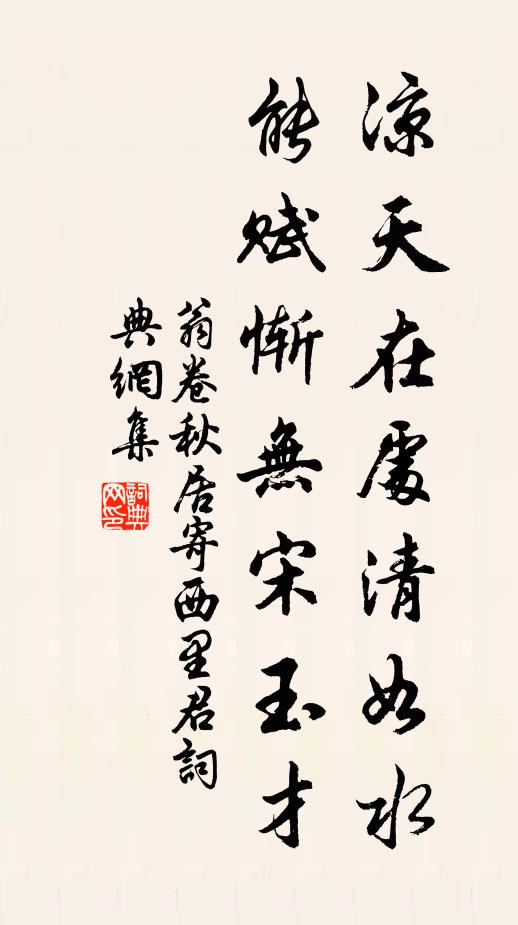 涼天在處清如水
能賦慚無宋玉才
翁卷秋居寄西里君詞
典網集
詞典網印